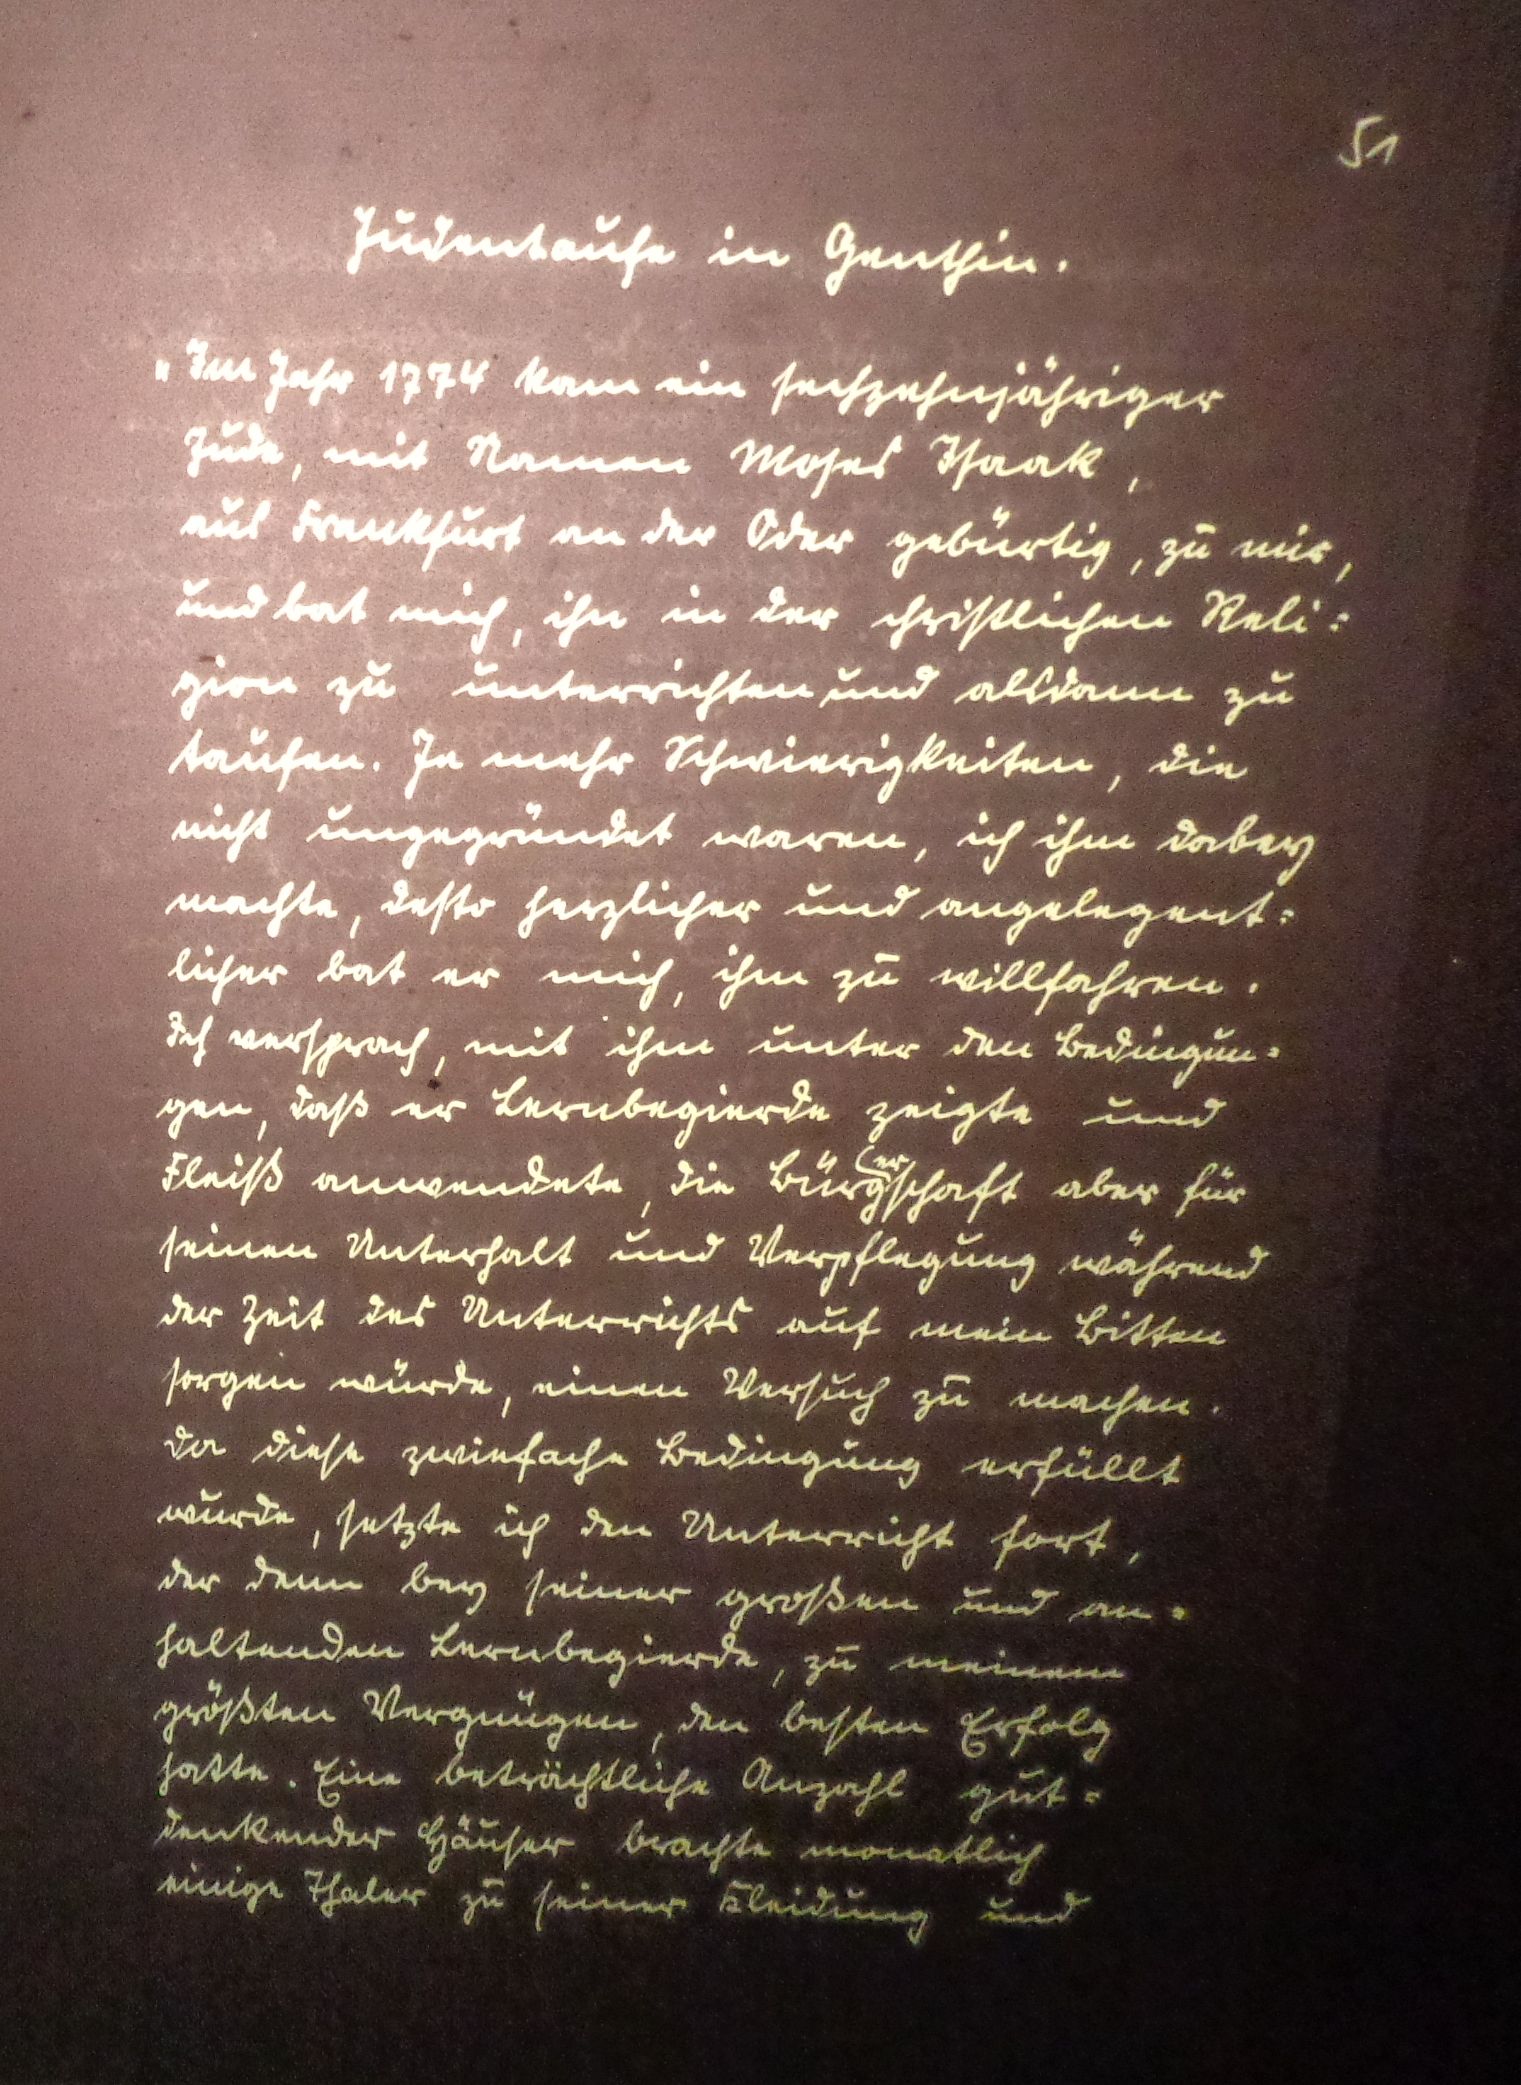 51
Judentaufe in Genthin.
„Im Jahr 1774 kam ein sechzehnjähriger
Jude, mit Namen Moses Isaak,
aus Frankfurt an der Oder gebürtig, zu mir,
und bat mich, ihn in der christlichen Reli=
gion zu unterrichten und alsdann zu
taufen. Je mehr Schwierigkeiten, die
nicht ungegründet waren, ich ihm dabey
machte, desto herzlicher und angelegent=
licher bat er mich, ihm zu willfahren.
Ich versprach, mit ihm unter den Bedingun=
gen, daß er Lernbegierde zeigte und
Fleiß anwendete, die Bürg(er)schaft aber für
seinen Unterhalt und Verpflegung während
der Zeit des Unterrichts auf mein Bitten
sorgen würde, einen Versuch zu machen.
Da diese zwiefache Bedingung erfüllt
wurde, setzte ich den Unterricht fort,
der denn bey seiner großen und an=
haltenden Lernbegierde, zu meinem
größten Vergnügen, den besten Erfolg
hatte. Eine beträchtliche Anzahl gut=
denkender Häuser brachte monatlich
einige Thaler zu seiner Kleidung und